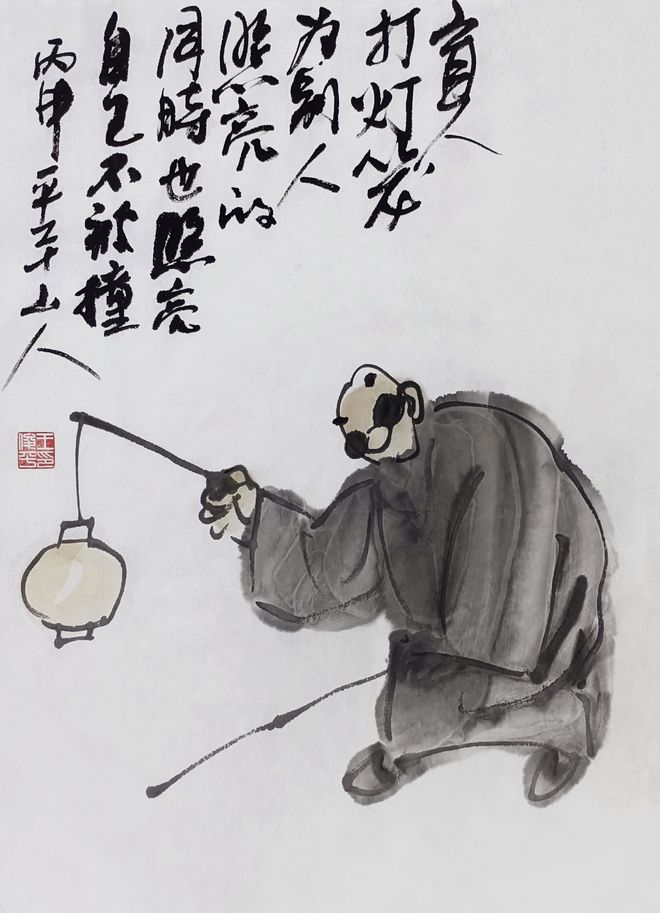 盲人
打灯笼
为别人
照亮的
同時也照亮
自己不被撞
丙申 平山人